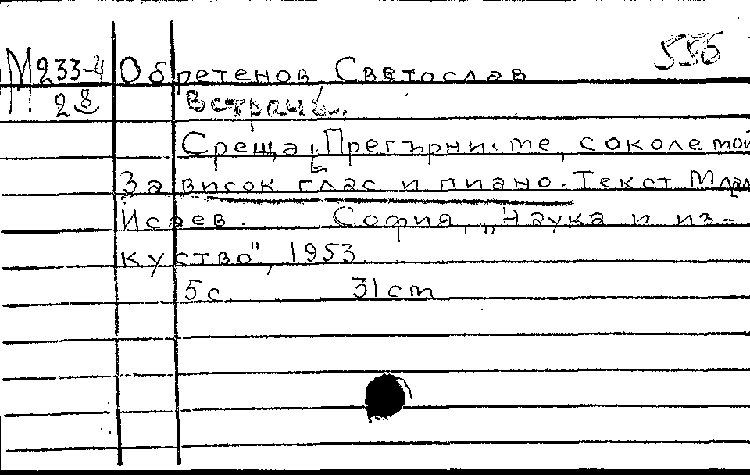 556
М 233-4 Обретенов, Светослав
28
Среща „Прегърни ме, соколе мой
За висок глас и пиано. Текст Млад
Исаев. София, „Наука и из-
куство", 1953
5 с. 31 cm